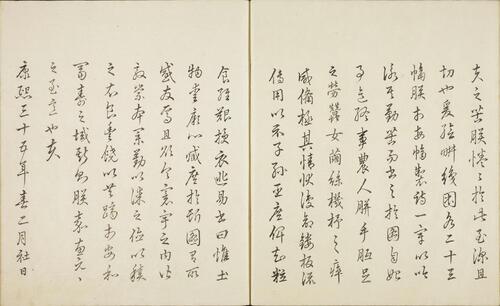 夫之苦朕惓惓於此至深且
切也爰繪畊織圖各二十三
幅朕於每幅製詩一章以吟
詠其勤苦而書之於圖自始
事迄終事農人胼手胝足
之勞蠶女繭絲機杼之瘁
咸備極其情狀復命鏤板流
傳用以示子孫臣庶俾知粒
食維艱授衣匪易書曰惟土
物愛厥心臧庶於斯圖有所
感發焉且欲令寰宇之內皆
敦崇本業勤以謀之儉以積
之衣食豐饒以共躋於安和
富壽之域斯則朕嘉惠元々
之至意也夫
康熙三十五年春二月社日